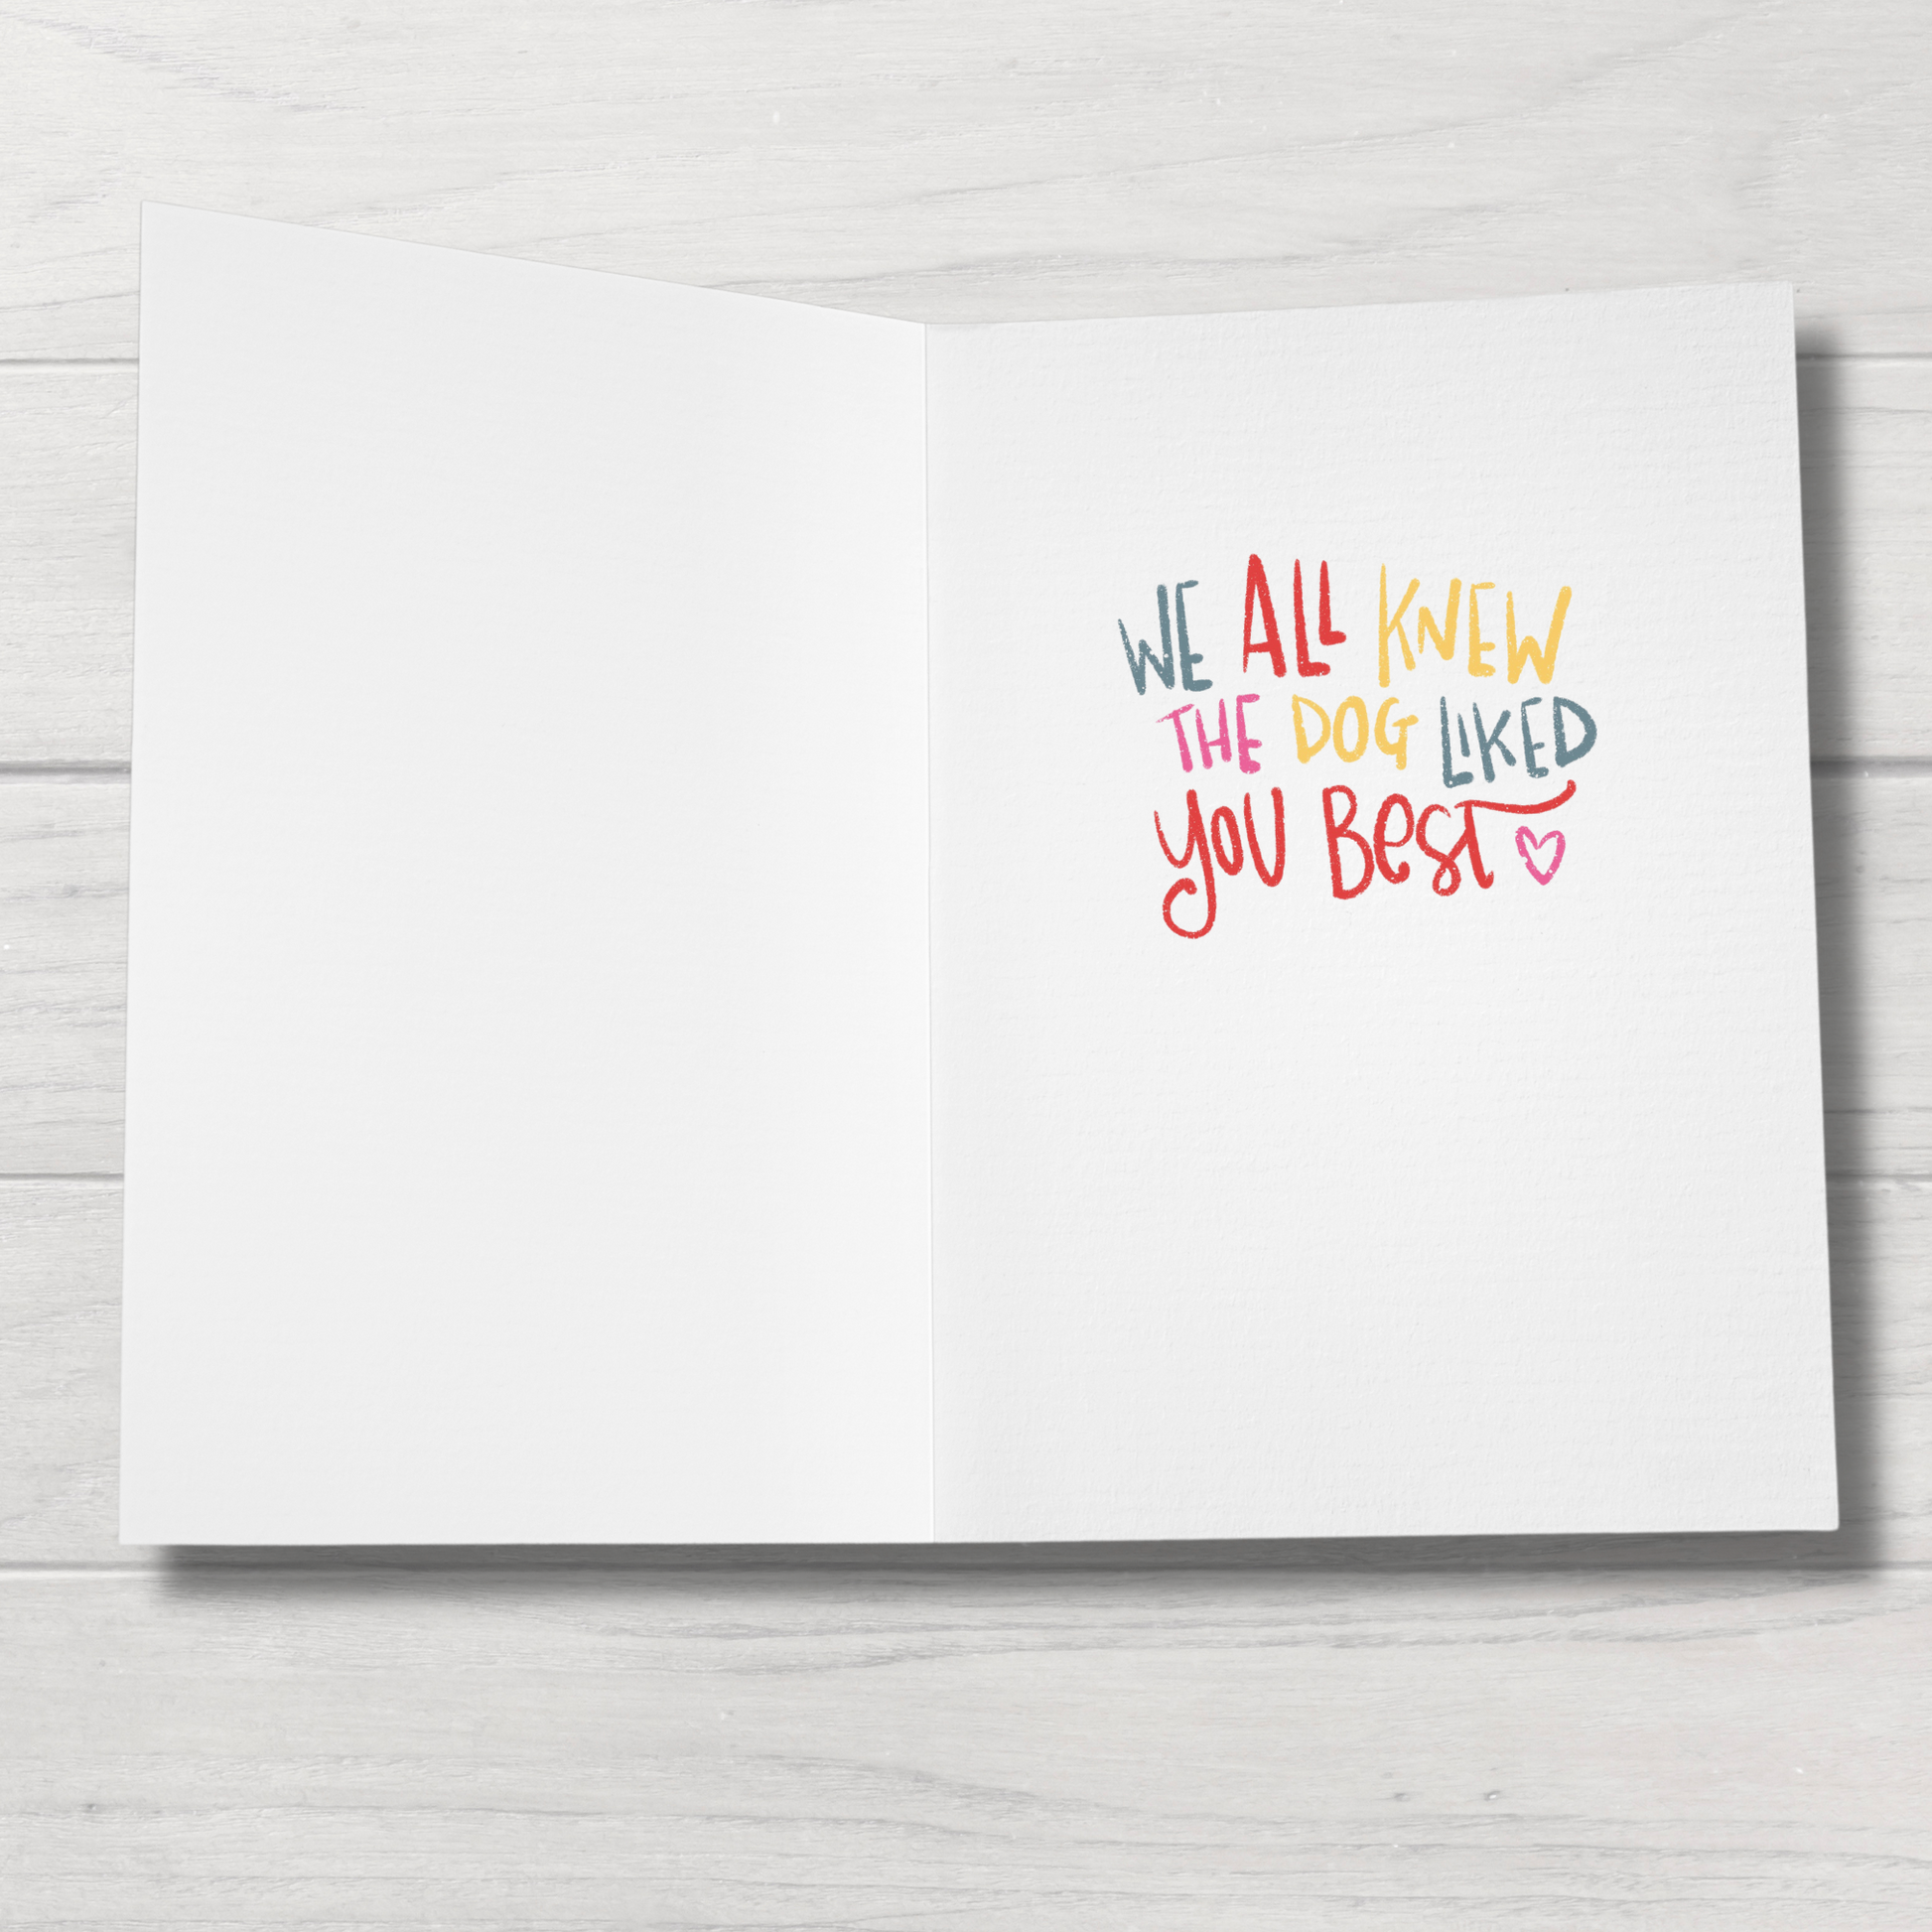 WE ALL KNEW
THE DOG LIKED
YOU BEST